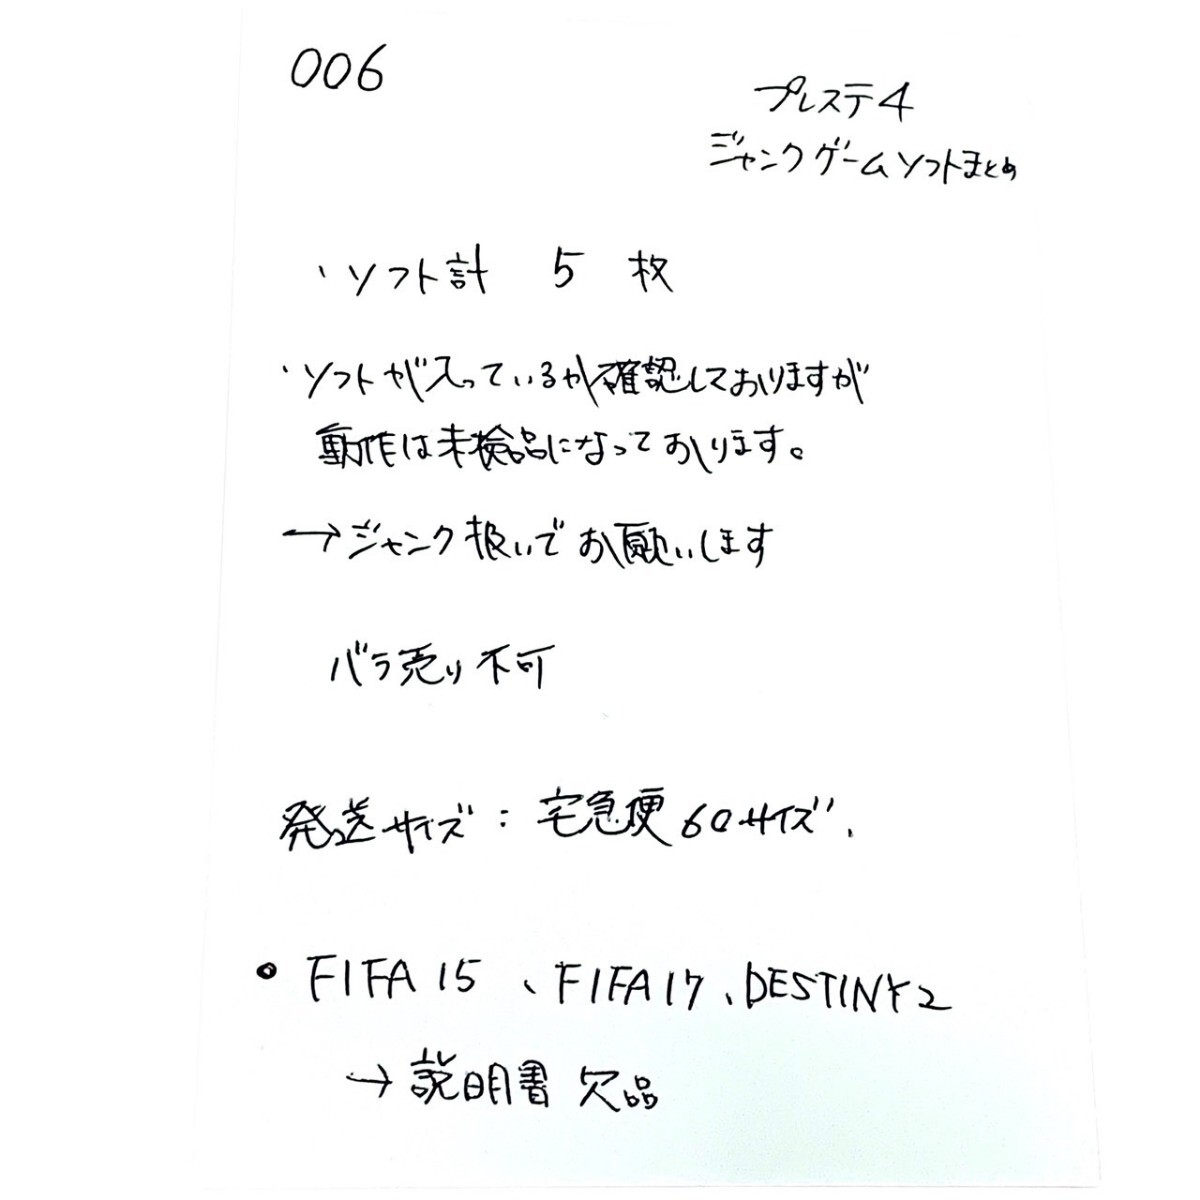 006
プレステ4
ジャンクゲームソフトまとめ
・ソフト計 5 枚
・ソフトが入っているか確認しておりますが
動作は未検品になっております。
→ジャンク扱いでお願いします
バラ売り不可
発送サイズ：宅急便60サイズ、
• FIFA15、FIFA17、DESTINY2
→説明書 欠品